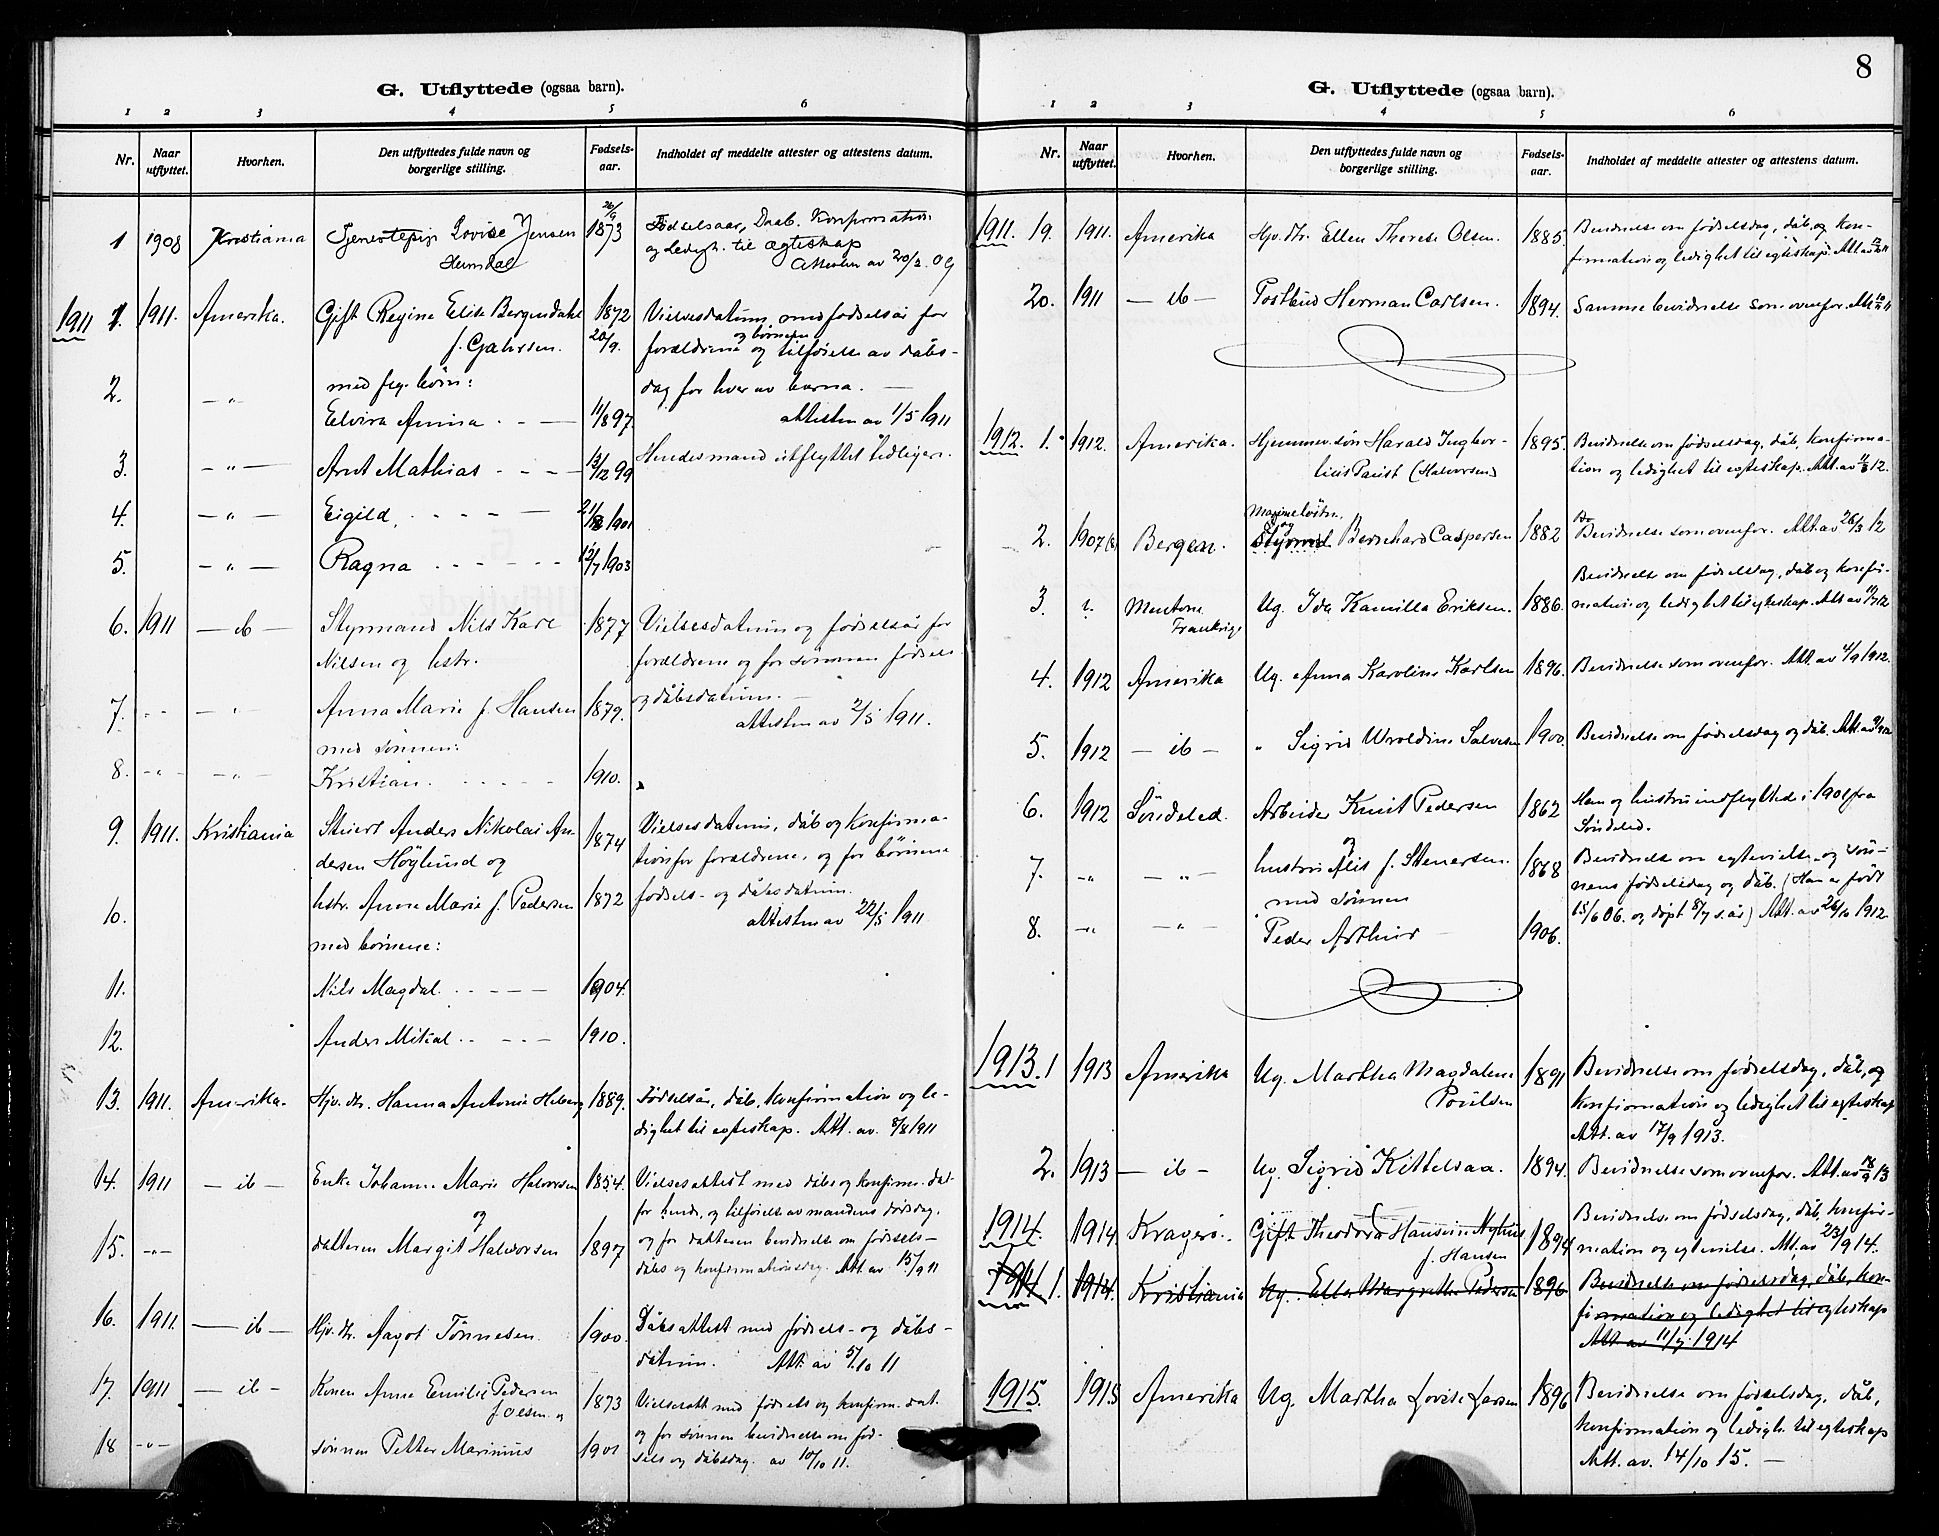 G. Utflyttede (ogsaa barn).
1 2 3 4 5 6
Nr. Naar utflyttet. Hvorhen. Den utflyttedes fulde navn og borgerlige stilling. Fødsels-aar. Indholdet af meddelte attester og attestens datum.
1 1908 Kristiania Tjenestepige Lovise Jensen 26/9 1873 Fødselsaar, Daab, Konfirmation
Heimdal og Ledigh. til ægteskap
Attesten av 20/2 09
1911 1. 1911. Amerika. Gift Regine Elise Bergendahl 1872 Vielsesdatum med fødselsår for
f. Gahrsen. 20/9. forældrene og børnene og tilføielse av dåbs-
2. — " — med flg. børn: dag for hver av barna. —
Elvira Amina - - — 11/8 97 attesten av 1/5 1911
3. — " — Arnt Mathias - - - - 13/12 99 Hendes mand utflyttet tidligere.
4. — " — Eigild, - - - - — 21/8 1901
5. — " — Ragna - - - - - - 12/7 1903
6. 1911 — ib — Styrmand Nils Karl 1877 Vielsesdatum og fødselsår for
Nilsen og hstr. forældrene og for sønnen fødsels
7. - - — " Anna Marie f. Hansen 1879. og dåbsdatum. —
med sønnen: attesten av 2/5 1911.
8. - " - — " — Kristian. - - - - - 1910.
9. 1911. Kristiania Stuert Anders Nikolai An- 1874 Vielsesdatum, dåb og konfirma-
dersen Höylund og tion for forældrene, og for børnene
10. hstr. Anne Marie f. Pedersen 1872 fødsels- og dåbsdatum.
med børnene: attesten av 22/5 1911
11. Nils Magdal. - - - — 1904.
12. Anders Mikal - - - - — 1910.
13. 1911. Amerika. Hjv. dtr. Hanna Antonie 1889. Fødselsår, dåb, konfirmation og le-
dighet til egteskap. Att. av. 8/8 1911
14. 1911 — ib — Enke Johanne Marie Halvorsen 1854. Vielsesattest med dåbs og konfirm. dat.
og for hende, og tilføielse av mandens dødsdag.
15. - " - datteren Margit Halvorsen 1897 og for datteren bevidnelse om fødsels-
dåbs og konfirmationsdag. Att. av 15/9 11
16. 1911. — ib — Hjv. dtr. Aagot Tönnesen 1900. Dåbsattest med fødsels- og dåbs-
datum. Att. av 5/10 11
17. 1911 — ib — Konen Anne Emilie Pedersen 1873 Vielsesatt. med fødsels og konfirm. dat.
f. Olsen og og for sønnen bevidnelse om fød-
18 - " - sønnen Petter Marinius 1901 sels og dåbsdag. av 10/10 11.
8
G. Utflyttede (ogsaa barn).
1 2 3 4 5 6
Nr. Naar utflyttet. Hvorhen. Den utflyttedes fulde navn og borgerlige stilling. Fødsels-aar. Indholdet af meddelte attester og attestens datum.
1911. 19. 1911. Amerika Hjv. dtr. Ellen Therese Olsen. 1885. Bevidnelse om fødselsdag, dåb, og kon-
firmation og ledighet til egteskap. Att. av
20. 1911 — ib — Postbud Herman Carlsen. 1894. Samme bevidnelse som ovenfor. Att.
1912. 1. 1912. Amerika. Hjemmev. søn Harald Ingvor- 1895. Bevidnelse om fødselsdag, dåb, konfirma-
(Halvorsen) tion og ledighet til egteskap. Att. av 11/3 12.
2. 1907 Bergen. og Bernhard Caspersen 1882 Bevidnelse som ovenfor. Att. av 26/3 12
Bevidnelse om fødselsdag, dåb og konfir-
3. ?. Mentone Ug. Ida Kamilla Eriksen. 1886. mation og ledighet til egteskap. Att. av
Frankrige
4. 1912 Amerika Ug. Anna Karoline Karlsen 1896. Bevidnelse som ovenfor. Att. av 4/9 1912.
5. 1912 — ib — " Sigrid Uvoldine Salvesen 1900. Bevidnelse om fødselsdag og dåb. Att. av
6. 1912 Söndeled. Arbeider Knut Pedersen 1862 Han og hustru indflyttet i 1901 fra
og Söndeled.
7. - " - — " — hustru Alis f. Stenersen. 1868 Bevidnelse om egtevielse og søn-
med sønnen nens fødselsdag og dåb. (Han er født
8. - " - — " — Peder Arthur — 1906. 15/6 06. og døpt 8/7 s. år) Att. av 26/10 1912.
1913. 1 1913 Amerika Ug. Martha Magdalene 1891 Bevidnelse om fødselsdag, dåb, og
Poulsen konfirmation og ledighet til egteskap
Att. av 17/9 1913.
2. 1913 — ib — Ug. Sigrid Kittelsaa. 1894. Bevidnelse som ovenfor. Att. av 18/9 13
1914. 1914 Kragerö. Gift Theodora Hansine 1894 Bevidnelse om fødselsdag, dåb, konfir-
f. Hansen mation og egtevielse. Att. av 23/9 14.
1914 1. 1914. Kristiania Ug. Ella Margrethe Pedersen 1896 Bevidnelse om fødselsdag, dåb, kon-
firmation og ledighet til egteskap
Att. av 11/7 1914
1915. 1915 Amerika Ug. Martha Lovise Larsen 1896 Bevidnelse om fødselsdag, dåb,
konfirmation og ledigh. til egteskap
Att. av. 14/10 15. —